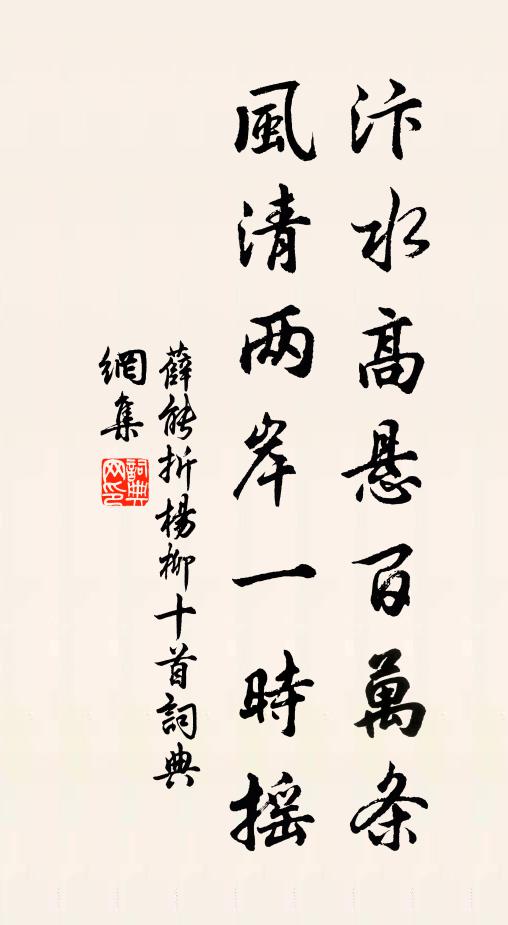 汴水高悬百萬条
風清两岸一時摇
薛能折楊柳十首詞典
網集
詞典网印